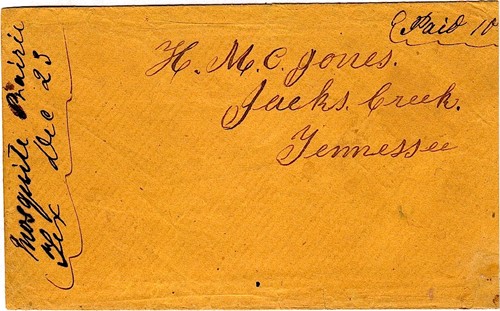 Paid 10
H. M. C. Jones.
Jacks. Creek.
Tennessee
Mosquite Prairie
Tex Dec 23